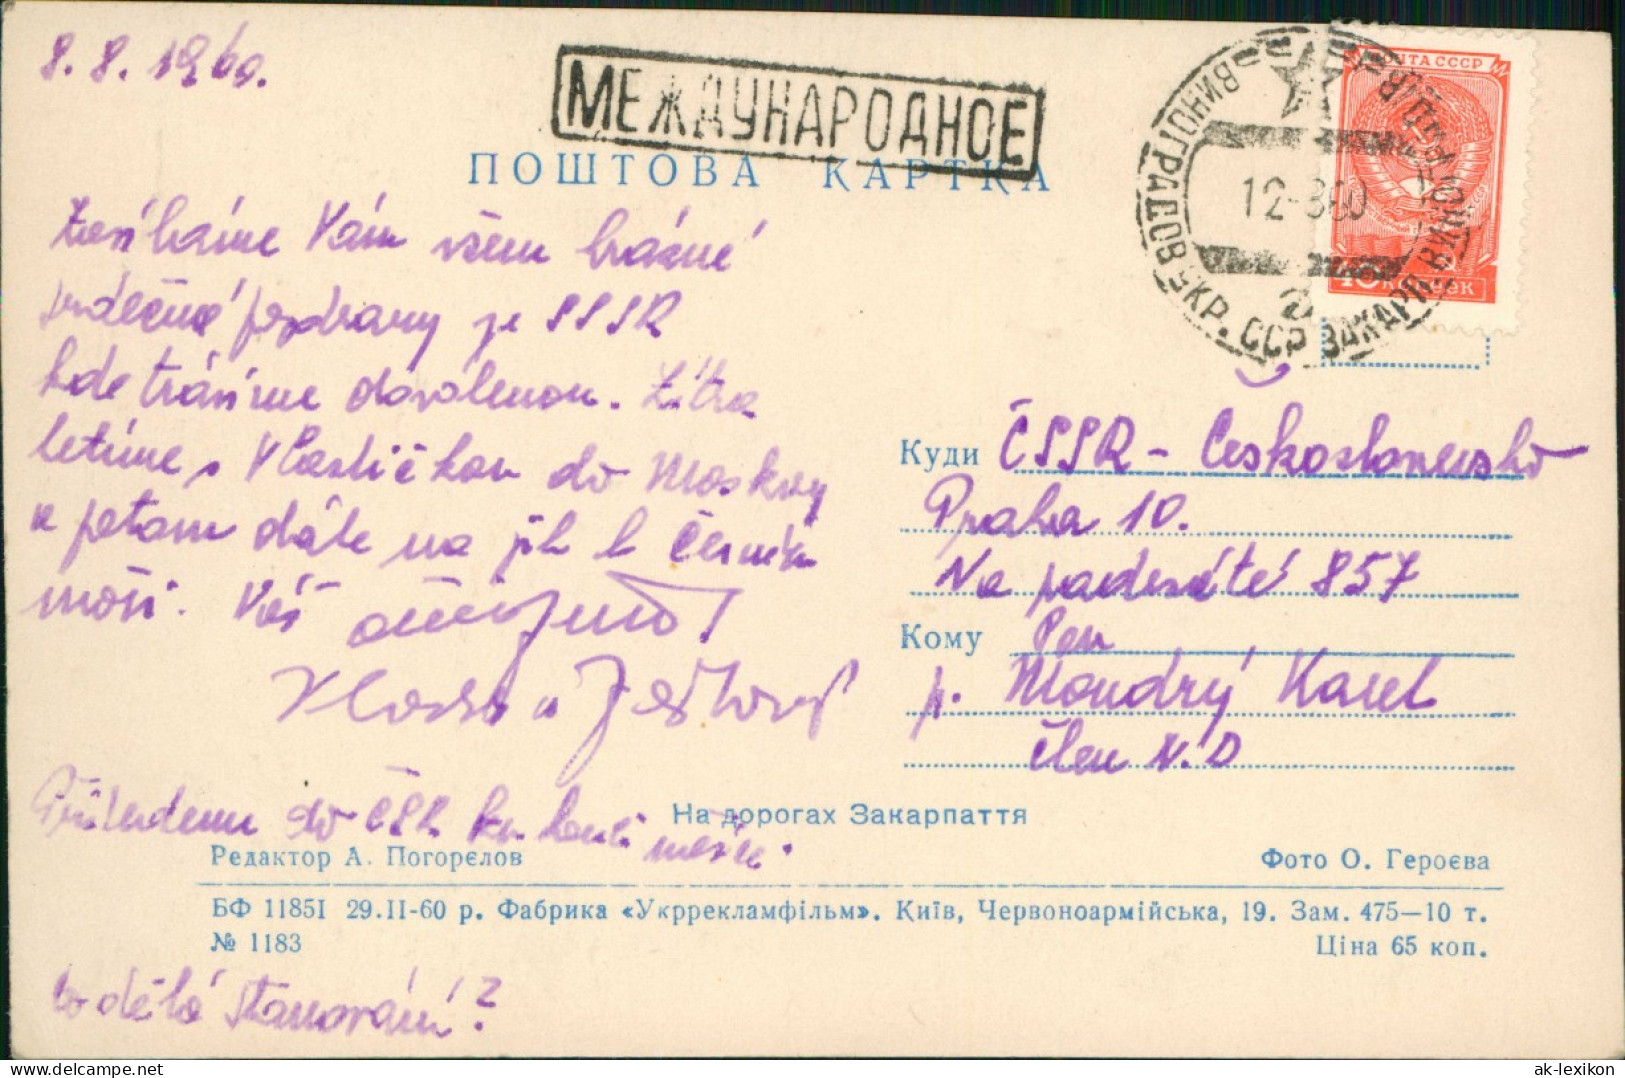 8.8.1960.
МЕЖДУНАРОДНОЕ
ПОШТОВА КАРТКА
ВИНОГРАДОВ УКР. ССР ЗАКАРП
12-860
ПОЧТА СССР
40 копеек
Zasíláme Vám všem krásné
srdečné pozdravy ze SSSR
kde trávíme dovolenou. Zítra
letíme s Vlastičkou do Moskvy
a potom dále na jih k Černému
moři. Váš
Vlasta a
Přijedeme do ČSR ku konci měsíce.
Co dělá stanování?
Куди ČSSR - Československo
Praha 10.
Na padesáté 857
Кому Pan
p. Moudrý Karel
Člen N.D
На дорогах Закарпаття
Редактор А. Погорєлов
Фото О. Героєва
БФ 11851 29.II-60 р. Фабрика «Укррекламфільм». Київ, Червоноармійська, 19. Зам. 475—10 т.
№ 1183
Ціна 65 коп.
ak-lexikon